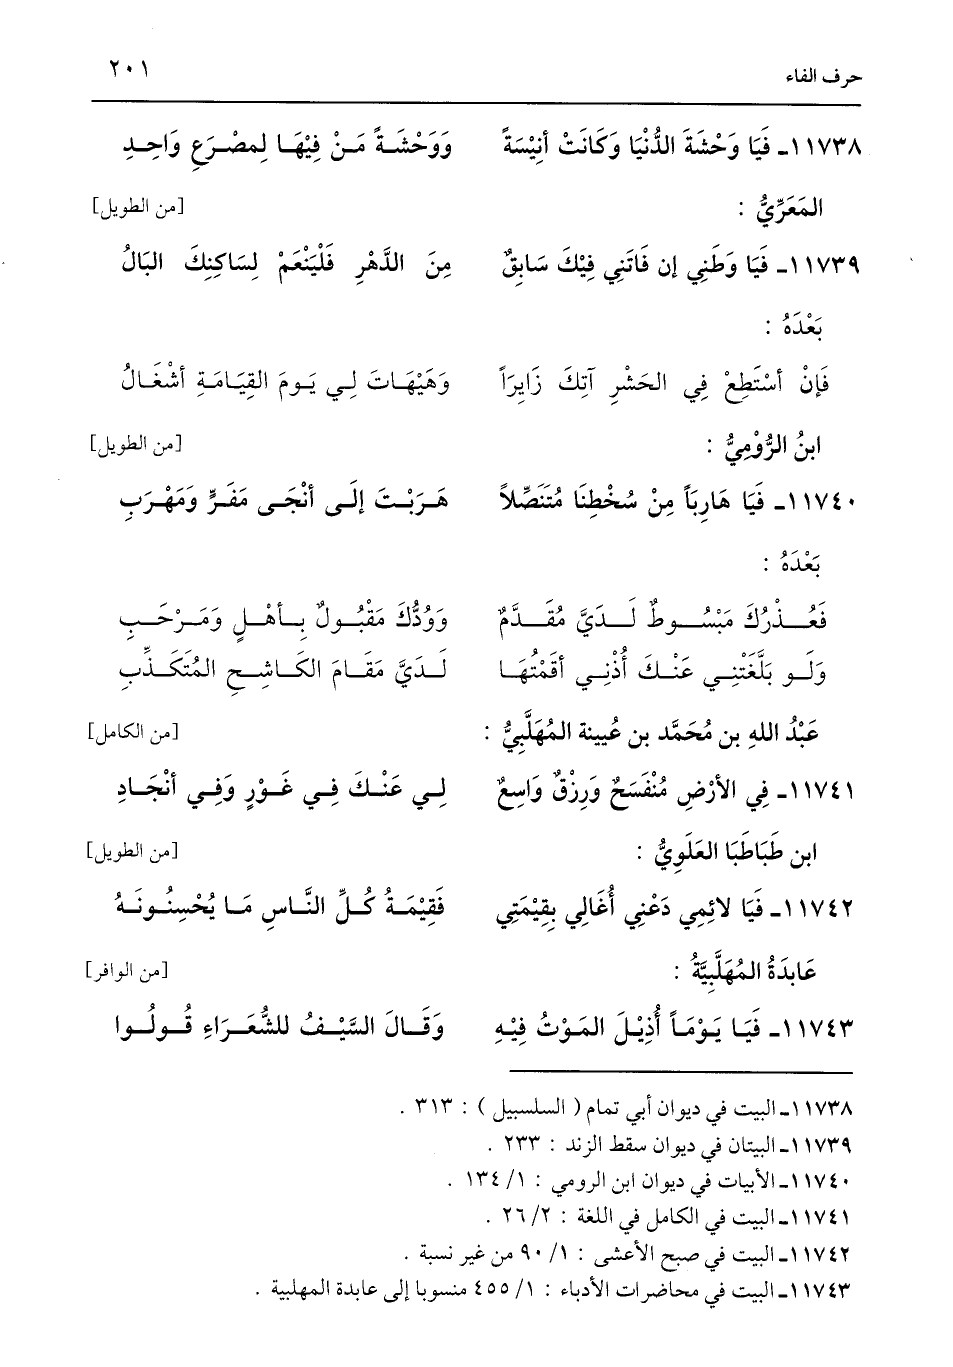 حرف الفاء ٢٠١
١١٧٣٨ـ فَيَا وَحْشَةَ الدُّنْيَا وَكَانَتْ أنِيْسَةً وَوَحْشَةً مَنْ فِيْهَا لِمصْرَعِ وَاحِدِ
المَعَرِّيُّ : [من الطويل]
١١٧٣٩ـ فَيَا وَطَنِي إن فَاتَنِي فِيْكَ سَابِقٌ مِنَ الدَّهْرِ فَلْيَنْعَمْ لِسَاكِنِكَ البَالُ
بَعْدَهُ :
فَإنْ أسْتَطِعْ فِي الحَشْرِ آتِكَ زَايِرَاً وَهَيْهَاتَ لِي يَومَ القِيَامَةِ أشْغَالُ
ابنُ الرُّوْمِيُّ : [من الطويل]
١١٧٤٠ـ فَيَا هَارِبَاً مِنْ سُخْطِنَا مُتَنَصِّلاً هَرَبْتَ إلَى أنْجَى مَفَرٍّ وَمَهْرَبِ
بَعْدَهُ :
فَعُذْرُكَ مَبْسُوطٌ لَدَيَّ مُقَدَّمٌ وَوُدُّكَ مَقْبُولٌ بِأهْلٍ وَمَرْحَبِ
وَلَو بَلَّغَتْنِي عَنْكَ أُذْنِي أقَمْتُهَا لَدَيَّ مَقَامَ الكَاشِحِ المُتَكَذِّبِ
عَبْدُ اللهِ بن مُحَمَّد بن عُيينة المُهَلَّبِيُّ : [من الكامل]
١١٧٤١ـ فِي الأرْضِ مُنْفَسَحٌ وَرِزْقٌ وَاسِعٌ لِي عَنْكَ فِي غَوْرٍ وَفِي أنْجَادِ
ابن طَبَاطَبَا العَلَوِيُّ : [من الطويل]
١١٧٤٢ـ فَيَا لائِمِي دَعْنِي أُغَالِي بِقِيْمَتِي فَقِيْمَةُ كُلِّ النَّاسِ مَا يُحْسِنُونَهُ
عَابدَةُ المُهَلَّبِيَّةُ : [من الوافر]
١١٧٤٣ـ فَيَا يَوْمَاً أُذِيْلَ المَوْتُ فِيْهِ وَقَالَ السَّيْفُ للشُّعَرَاءِ قُولُوا
١١٧٣٨ـ البيت في ديوان أبي تمام ( السلسبيل ) : ٣١٣ .
١١٧٣٩ـ البيتان في ديوان سقط الزند : ٢٣٣ .
١١٧٤٠ـ الأبيات في ديوان ابن الرومي : ١/ ١٣٤ .
١١٧٤١ـ البيت في الكامل في اللغة : ٢/ ٢٦ .
١١٧٤٢ـ البيت في صبح الأعشى : ١/ ٩٠ من غير نسبة .
١١٧٤٣ـ البيت في محاضرات الأدباء : ١/ ٤٥٥ منسوبا إلى عابدة المهلبية .